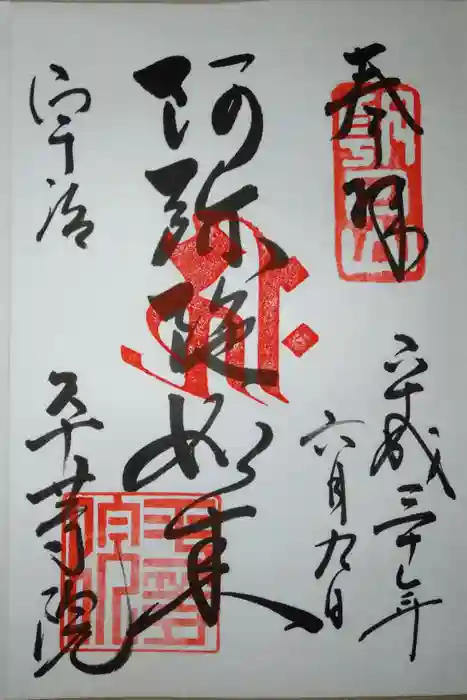 奉拝
平成三十年
六月九日
阿弥陀如来
宇治
平等院